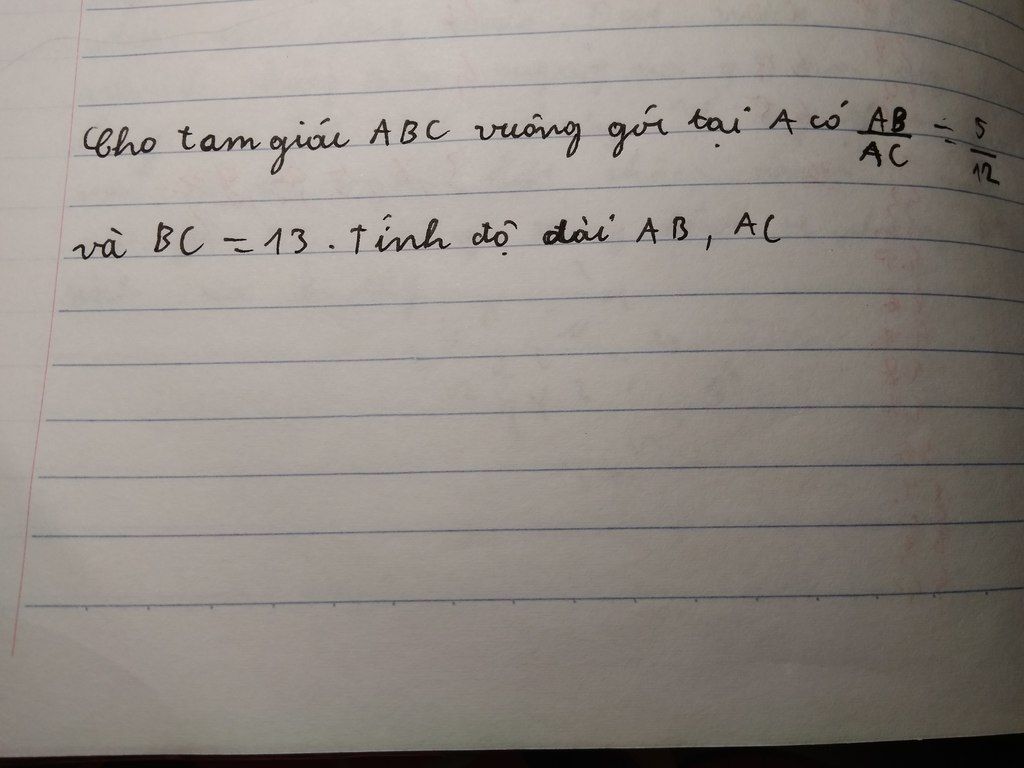 Cho tam giác ABC vuông góc tại A có AB/AC = 5/12
và BC = 13. Tính độ dài AB, AC